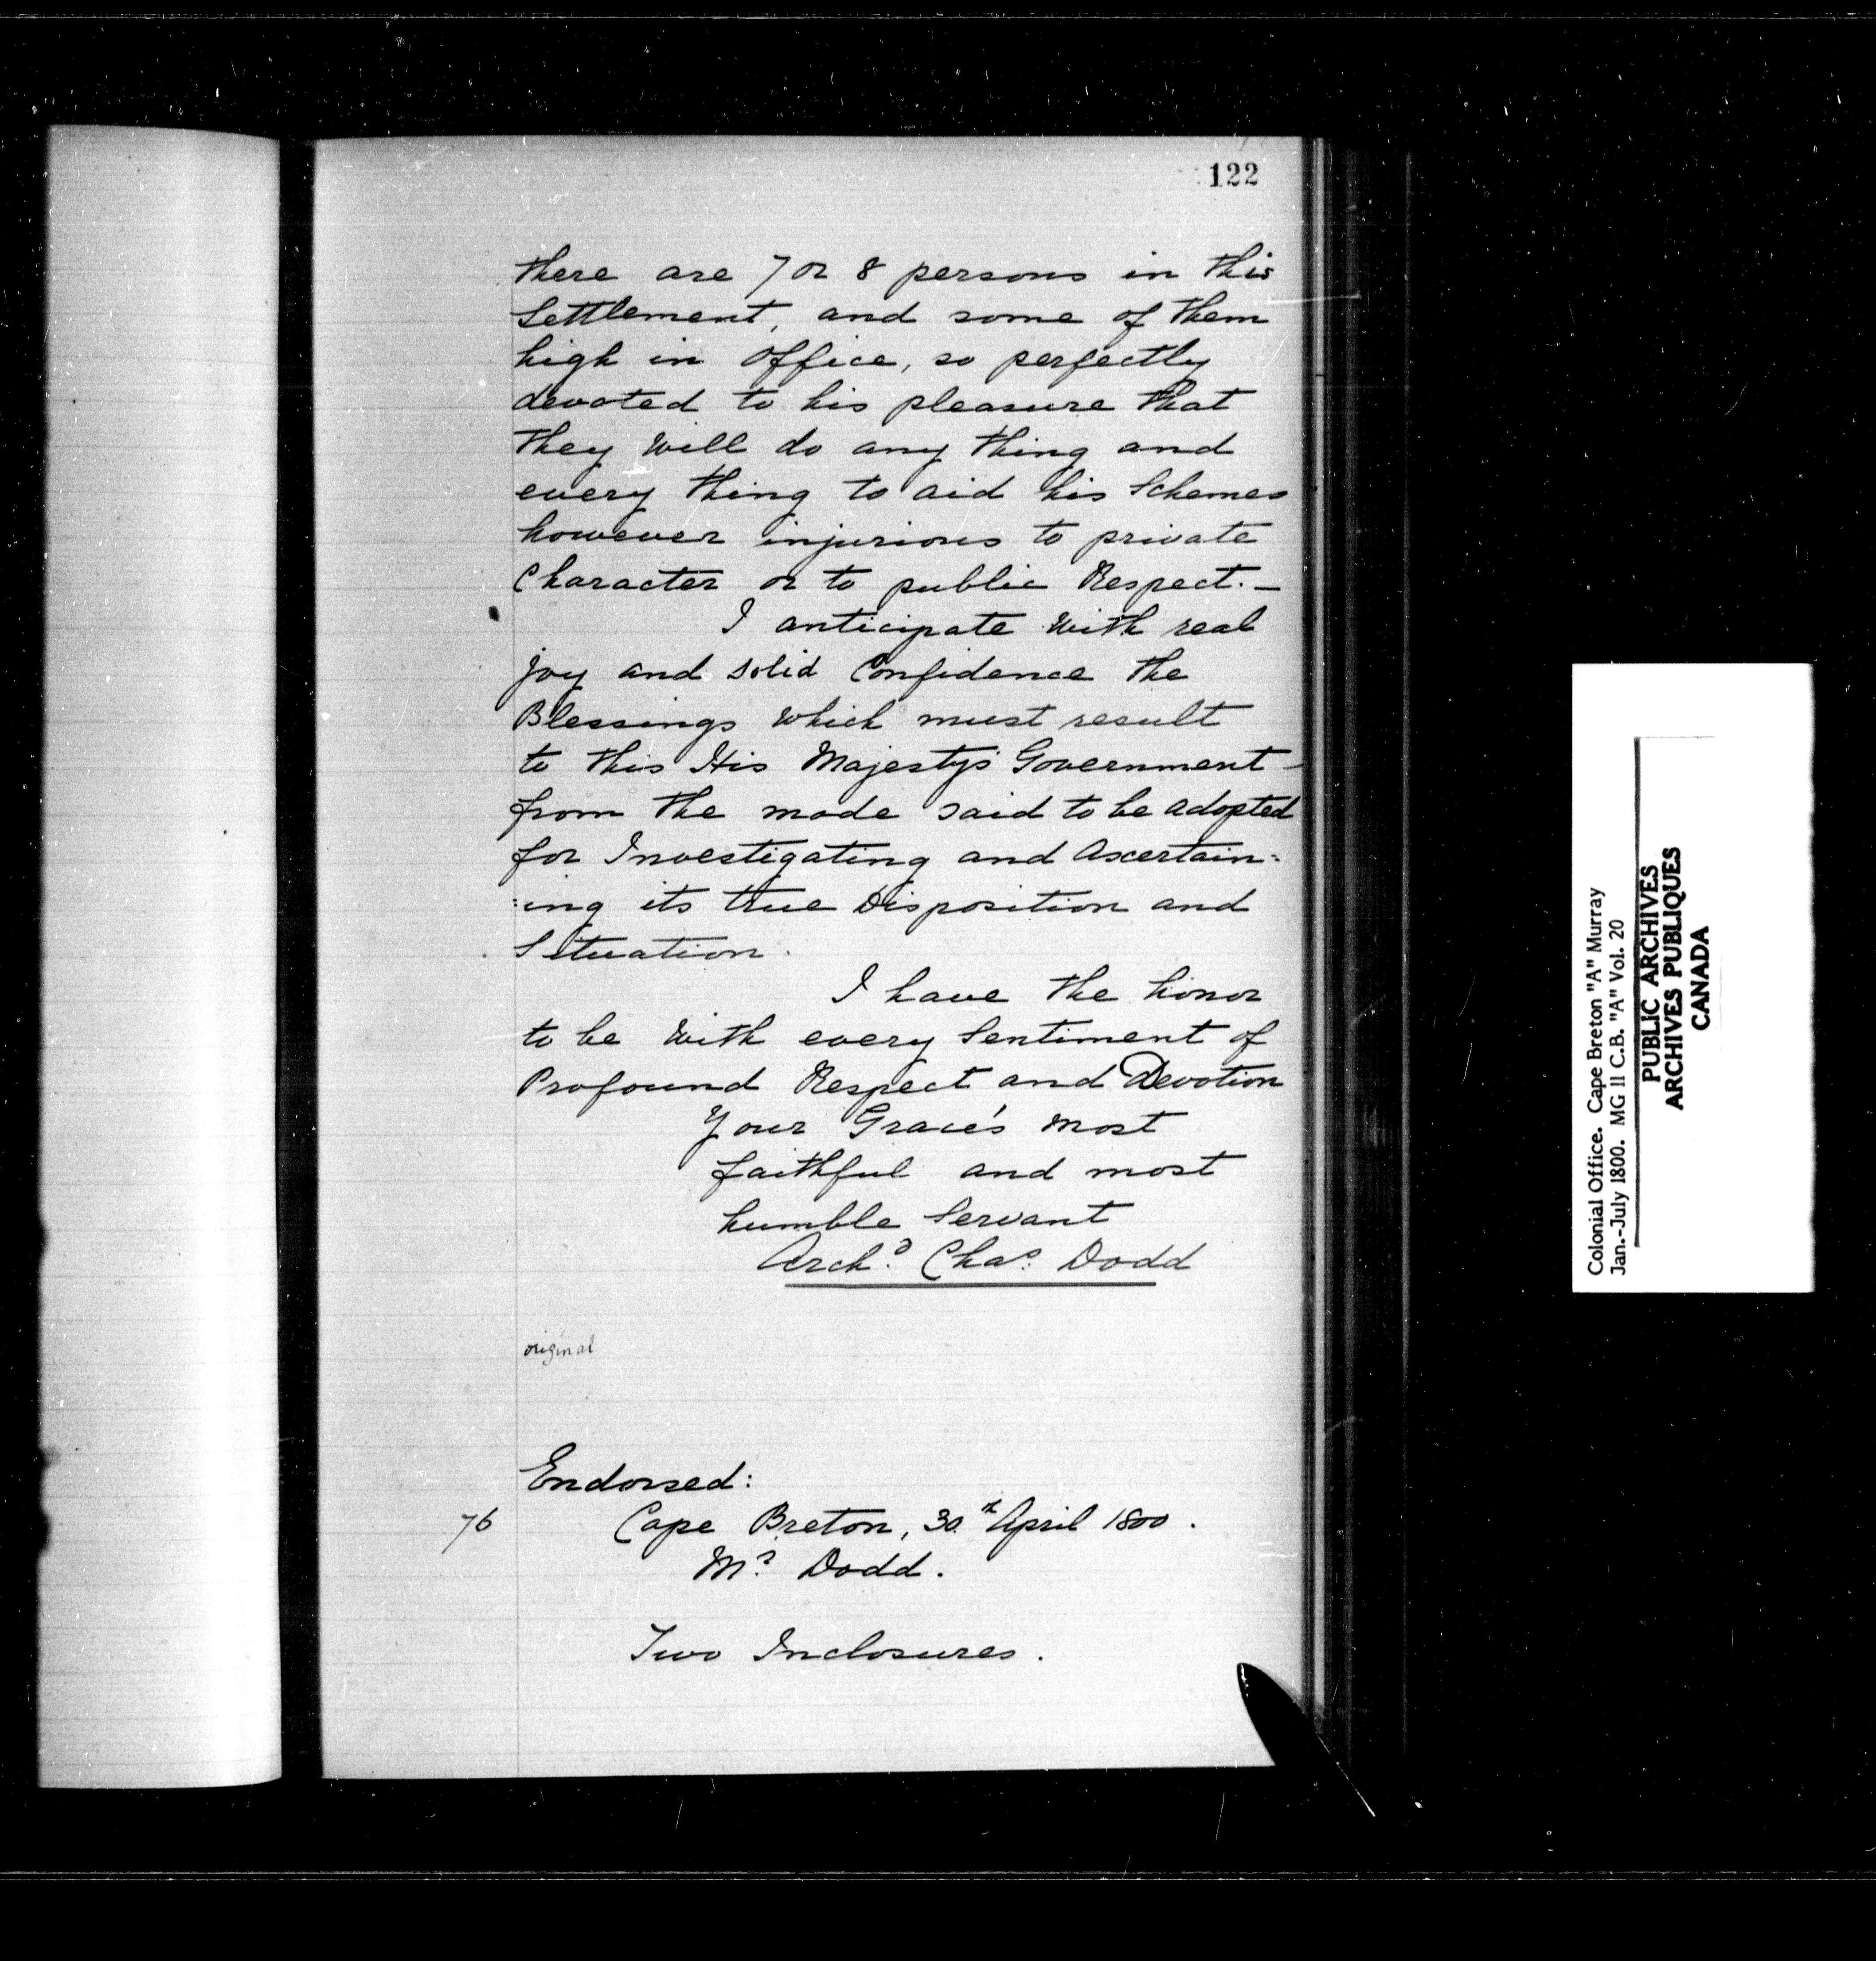 122
there are 7 or 8 persons in this
Settlement, and some of them
high in office, so perfectly
devoted to his pleasure that
they will do any thing and
every thing to aid his Schemes
however injurious to private
Character or to public Respect. —
I anticipate with real
joy and solid Confidence the
Blessings which must result
to this His Majesty's Government
from the mode said to be adopted
for Investigating and Ascertain=
=ing its true Disposition and
Situation.
I have the honor
to be with every Sentiment of
Profound Respect and Devotion
Your Grace's most
faithful and most
humble Servant
Archd. Chas. Dodd
original
Endorsed:
76 Cape Breton, 30th April 1800.
Mr. Dodd.
Two Inclosures.
Colonial Office. Cape Breton "A" Murray
Jan.-July 1800. MG 11 C.B. "A" Vol. 20
PUBLIC ARCHIVES
ARCHIVES PUBLIQUES
CANADA